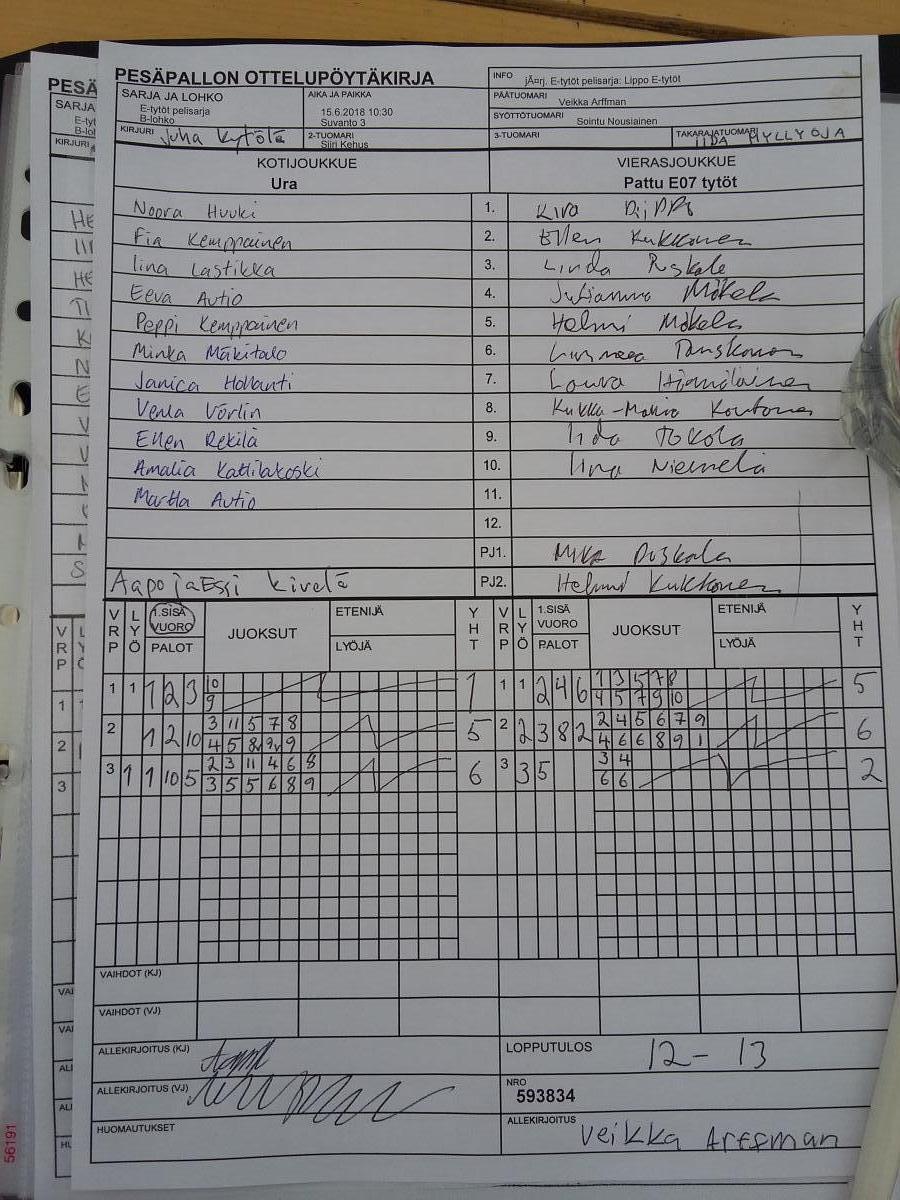 PESÄPALLON OTTELUPÖYTÄKIRJA
INFO jÃ¤rj. E-tytöt pelisarja: Lippo E-tytöt
SARJA JA LOHKO
E-tytöt pelisarja
B-lohko
AIKA JA PAIKKA
15.6.2018 10:30
Suvanto 3
PÄÄTUOMARI Veikka Arffman
SYÖTTÖTUOMARI Sointu Nousiainen
KIRJURI Juha Kytölä
2-TUOMARI
Siiri Kehus
3-TUOMARI
TAKARAJATUOMARI IIDA MYLLYOJA
KOTIJOUKKUE
Ura
VIERASJOUKKUE
Pattu E07 tytöt
Noora Huuki 1. Kira
Fia Kemppainen 2. Ellen Kukkonen
Iina Lastikka 3. Linda Puskala
Eeva Autio 4. Julianna Mäkelä
Peppi Kemppainen 5. Helmi Mäkelä
Minka Mäkitalo 6. Linnea Tanskanen
Janica Hollanti 7. Laura Hämäläinen
Venla Vörlin 8. Kukka-Maria Kontonen
Ellen Rekilä 9. Iida Tokola
Amalia Kattilakoski 10. Iina Niemelä
Martta Autio 11.
12.
PJ1. Mika Puskala
Aapo ja Essi Kivelä PJ2. Helmi Kukkonen
VRP LYÖ 1.SISÄ VUORO PALOT JUOKSUT ETENIJÄ LYÖJÄ YHT VRP LYÖ 1.SISÄ VUORO PALOT JUOKSUT ETENIJÄ LYÖJÄ YHT
1 1 1 2 3 10 1 1 1 2 4 6 1 3 5 7 8 5
9 4 5 7 9 10
2 1 2 10 3 11 5 7 8 5 2 2 3 8 2 2 4 5 6 7 9 6
4 5 8 9 4 6 6 8 9 1
3 1 1 10 5 2 3 11 4 6 8 6 3 3 5 3 4 2
3 5 5 6 8 9 6 6
VAIHDOT (KJ)
VAIHDOT (VJ)
ALLEKIRJOITUS (KJ)
LOPPUTULOS 12 - 13
ALLEKIRJOITUS (VJ)
NRO
593834
HUOMAUTUKSET
ALLEKIRJOITUS Veikka Arffman
56191